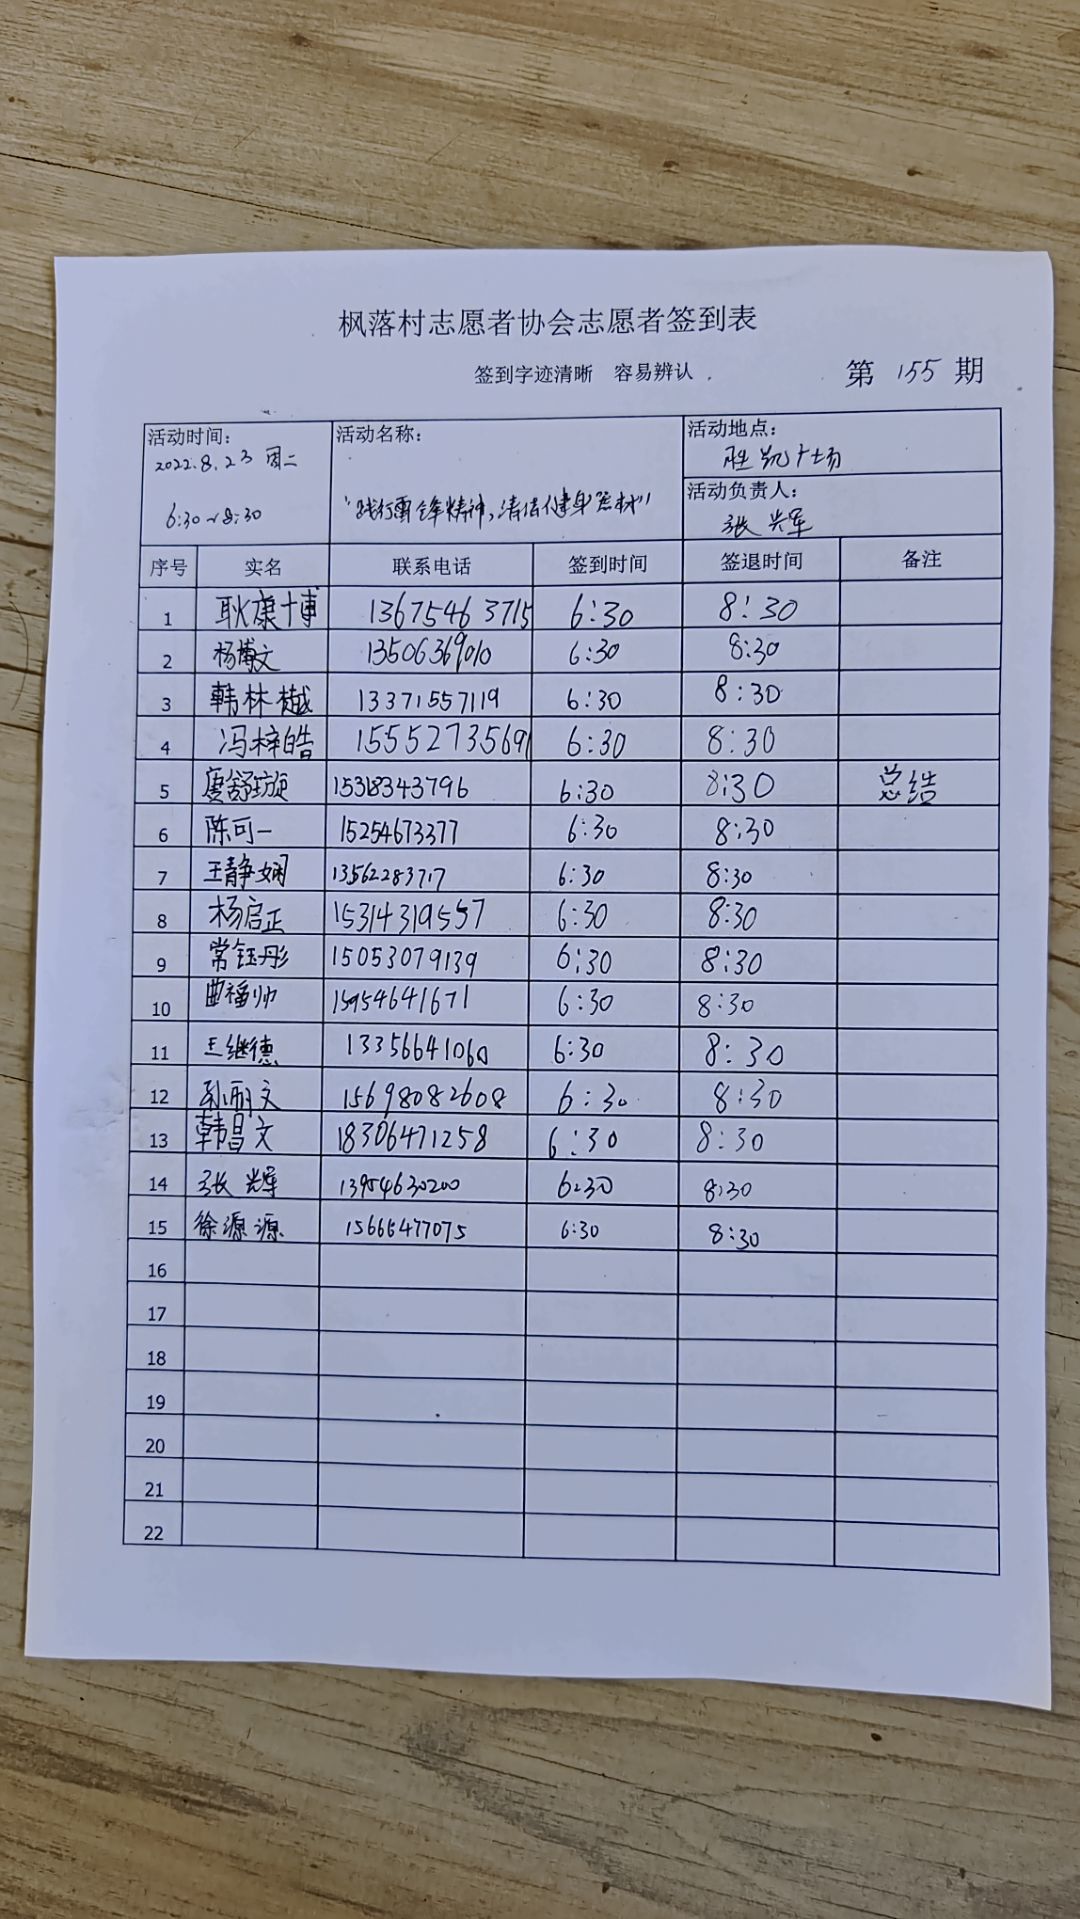 枫落村志愿者协会志愿者签到表
签到字迹清晰 容易辨认
第 155 期
活动时间: 活动名称: 活动地点:
2022.8.23 周二 胜凯广场
6:30~8:30 "践行雷锋精神,清洁健身器材" 活动负责人:
张辉
序号 实名 联系电话 签到时间 签退时间 备注
1 耿康博 13675463715 6:30 8:30
2 杨博文 13506369010 6:30 8:30
3 韩林樾 13371557119 6:30 8:30
4 冯梓皓 15552735691 6:30 8:30
5 唐舒璇 15318343796 6:30 8:30 总结
6 陈可一 15254673377 6:30 8:30
7 王静娴 13562283717 6:30 8:30
8 杨启正 15314319557 6:30 8:30
9 常钰彤 15053079139 6:30 8:30
10 曲福帅 15954641671 6:30 8:30
11 王继德 13356641060 6:30 8:30
12 孙丽文 15698082608 6:30 8:30
13 韩昌文 18306471258 6:30 8:30
14 张辉 13954630200 6:30 8:30
15 徐源源 15666477075 6:30 8:30
16
17
18
19
20
21
22